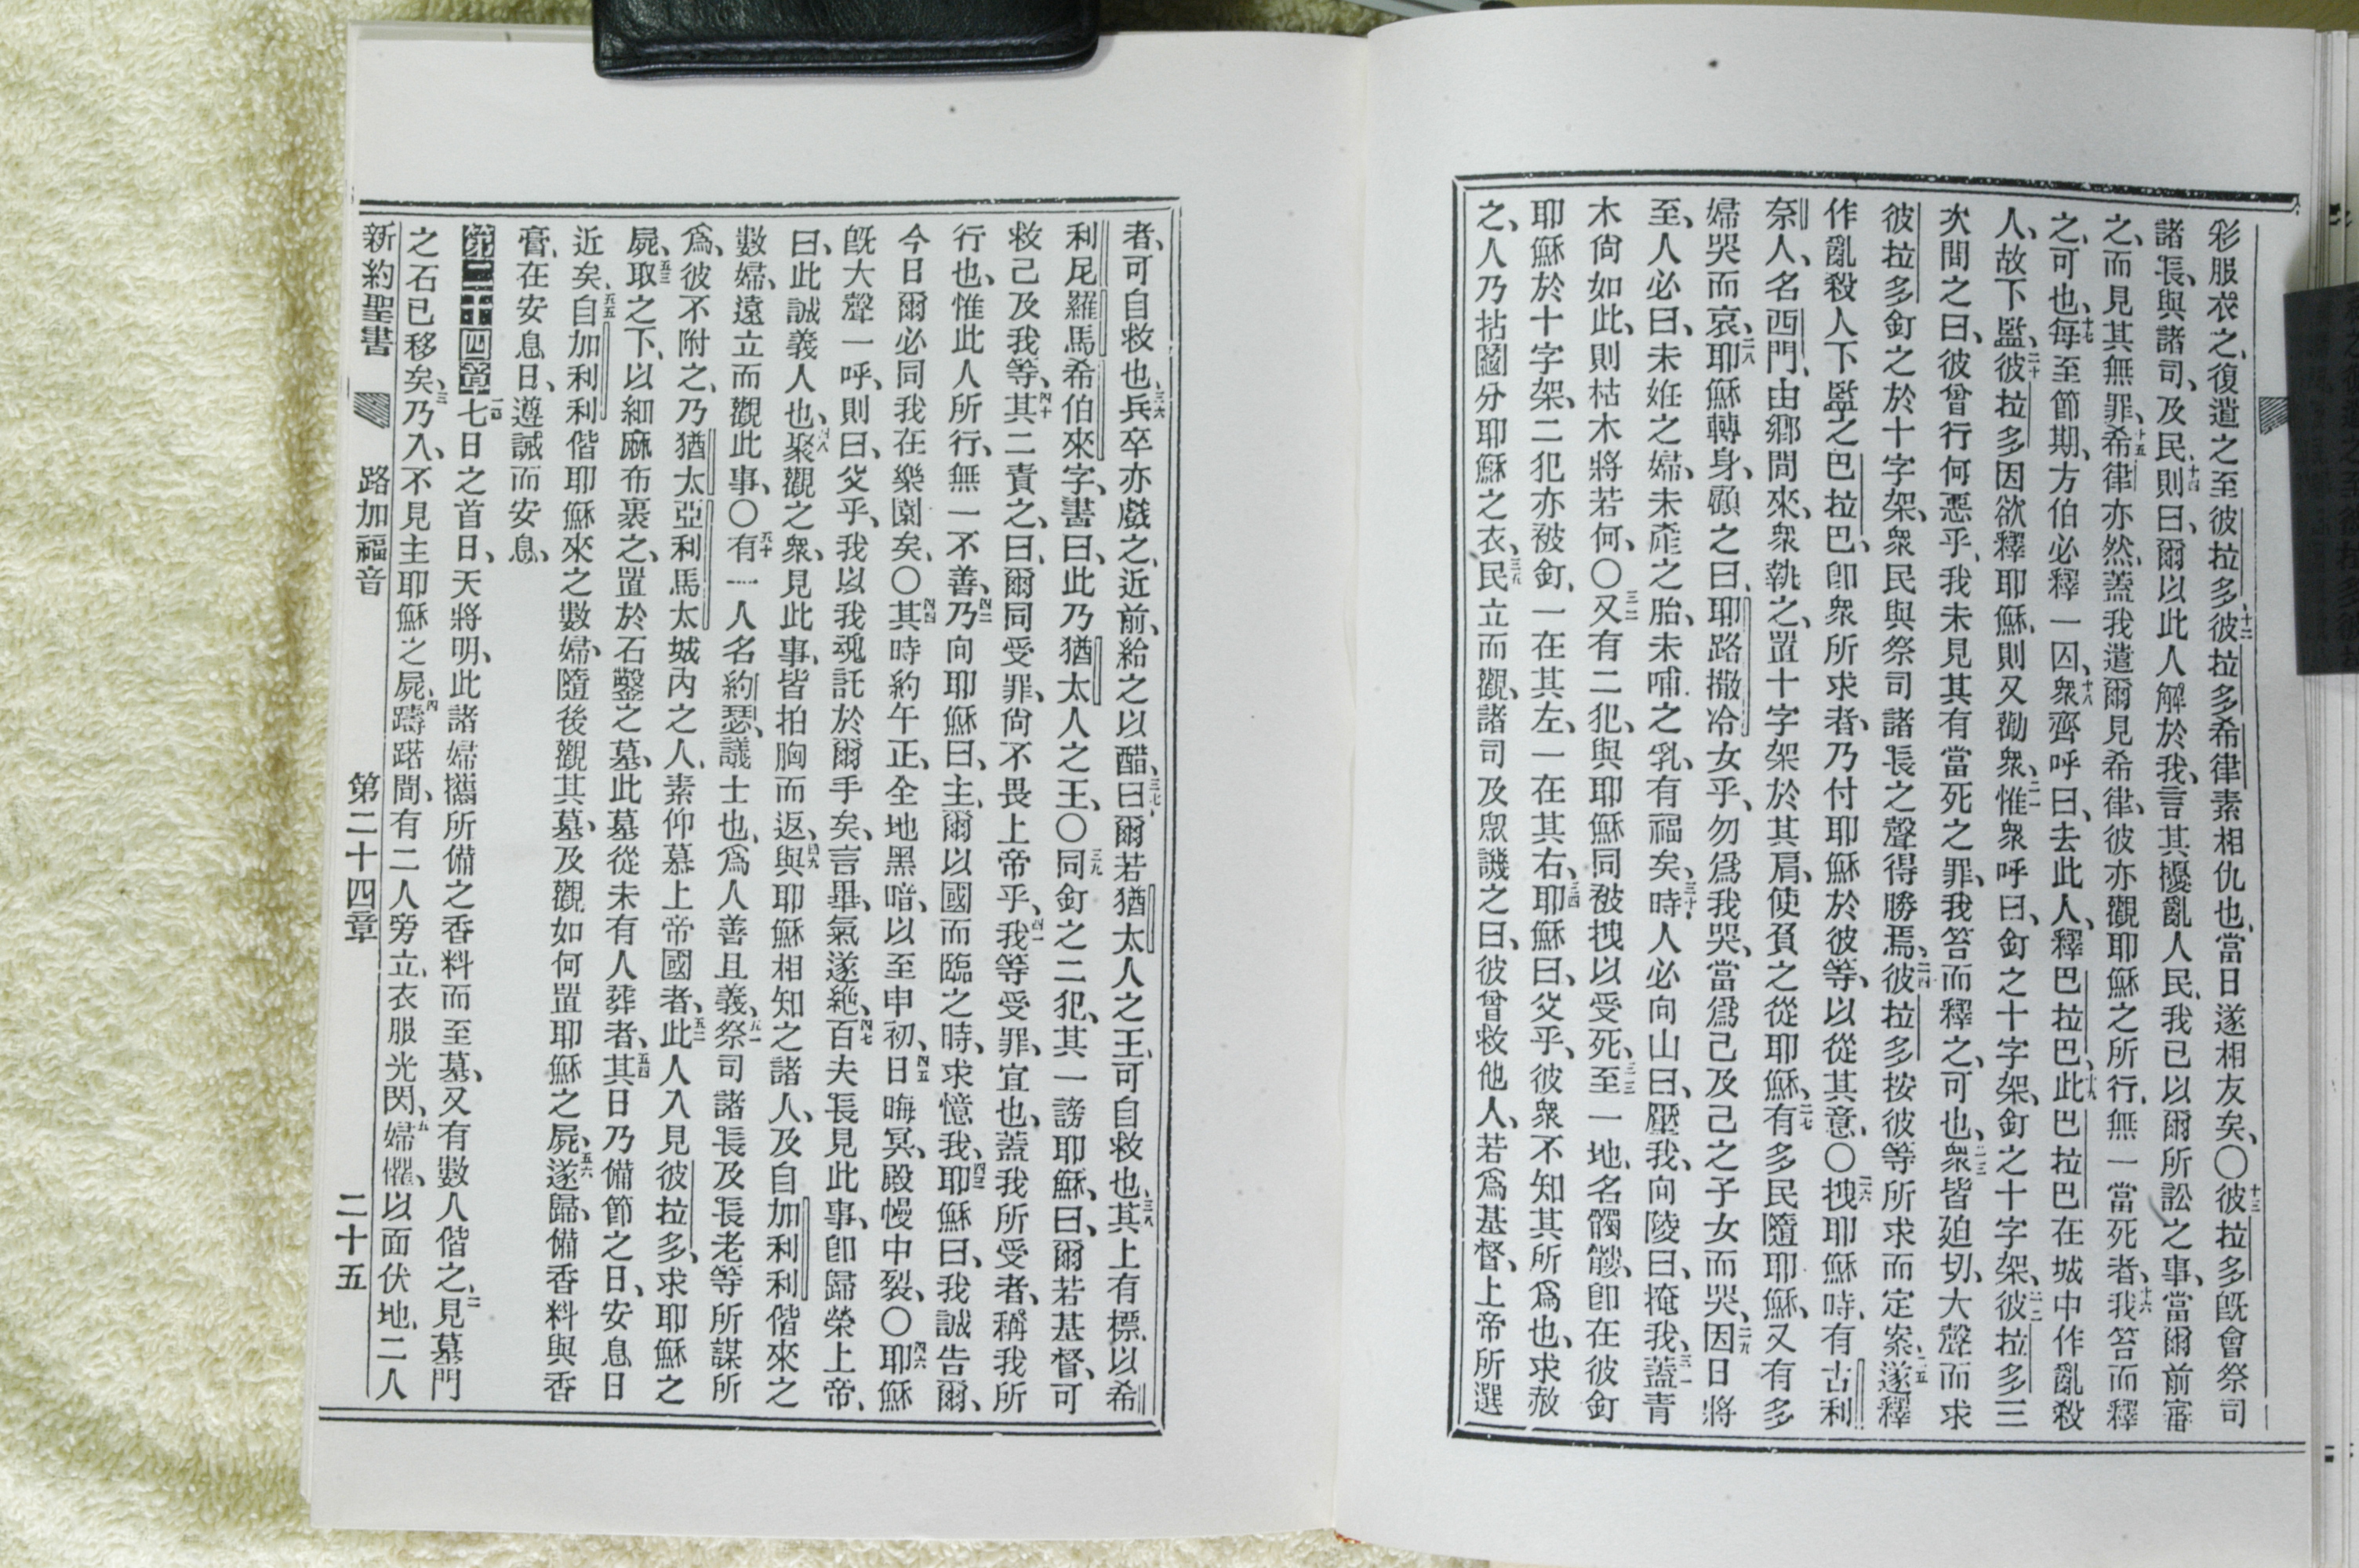 彩服衣之、復遣之至彼拉多、十二彼拉多希律素相仇也、當日遂相友矣、〇十三彼拉多既會祭司
諸長、與諸司、及民、十四則曰、爾以此人解於我、言其擾亂人民、我已以爾所訟之事、當爾前審
之、而見其無罪、十五希律亦然、蓋我遣爾見希律、彼亦觀耶穌之所行、無一當死者、十六我笞而釋
之、可也、十七每至節期、方伯必釋一囚、十八衆齊呼曰、去此人、釋巴拉巴、十九此巴拉巴在城中作亂殺
人、故下監、二十彼拉多因欲釋耶穌、則又勸衆、二一惟衆呼曰、釘之十字架、釘之十字架、二二彼拉多三
次問之曰、彼曾行何惡乎、我未見其有當死之罪、我笞而釋之、可也、二三衆皆廹切、大聲而求
彼拉多釘之於十字架、衆民與祭司諸長之聲得勝焉、二四彼拉多按彼等所求而定案、二五遂釋
作亂殺人下監之巴拉巴、卽衆所求者、乃付耶穌於彼等、以從其意、〇二六拽耶穌時、有古利
奈人、名西門、由鄉間來、衆執之、置十字架於其肩、使負之從耶穌、二七有多民隨耶穌、又有多
婦哭而哀、二八耶穌轉身、顧之曰、耶路撒冷女乎、勿爲我哭、當爲己及己之子女而哭、二九因日將
至、人必曰、未姙之婦、未產之胎、未哺之乳、有福矣、三十時、人必向山曰、壓我、向陵曰、掩我、三一蓋青
木尙如此、則枯木將若何、〇三二又有二犯、與耶穌同被拽以受死、三三至一地、名髑髏、卽在彼釘
耶穌於十字架、二犯亦被釘、一在其左、一在其右、三四耶穌曰、父乎、彼衆不知其所爲也、求赦
之、人乃拈鬮分耶穌之衣、三五民立而觀、諸司及眾譏之曰、彼曾救他人、若爲基督、上帝所選
者、可自救也、三六兵卒亦戲之、近前、給之以醋、三七曰、爾若猶太人之王、可自救也、三八其上有標、以希
利尼羅馬希伯來字、書曰、此乃猶太人之王、〇三九同釘之二犯、其一謗耶穌、曰、爾若基督、可
救己及我等、四十其二責之、曰、爾同受罪、尙不畏上帝乎、四一我等受罪、宜也、蓋我所受者、稱我所
行也、惟此人所行、無一不善、四二乃向耶穌曰、主、爾以國而臨之時、求憶我、四三耶穌曰、我誠告爾、
今日爾必同我在樂園矣、〇四四其時約午正、全地黑暗、以至申初、四五日晦冥、殿幔中裂、〇四六耶穌
既大聲一呼、則曰、父乎、我以我魂託於爾手矣、言畢、氣遂絶、四七百夫長見此事、卽歸榮上帝、
曰、此誠義人也、四八聚觀之衆、見此事、皆拍胸而返、四九與耶穌相知之諸人、及自加利利偕來之
數婦、遠立而觀此事、〇五十有一人名約瑟、議士也、爲人善且義、五一祭司諸長及長老等所謀所
爲、彼不附之、乃猶太亞利馬太城內之人、素仰慕上帝國者、五二此人入見彼拉多、求耶穌之
屍、五三取之下、以細麻布裹之、置於石鑿之墓、此墓從未有人葬者、五四其日乃備節之日、安息日
近矣、五五自加利利偕耶穌來之數婦、隨後觀其墓、及觀如何置耶穌之屍、五六遂歸、備香料與香
膏、在安息日、遵誡而安息、
第二十四章 一七日之首日、天將明、此諸婦攜所備之香料而至墓、又有數人偕之、二見墓門
之石已移矣、三乃入、不見主耶穌之屍、四躊躇間、有二人旁立、衣服光閃、五婦懼、以面伏地、二人
新約聖書 路加福音 第二十四章 二十五